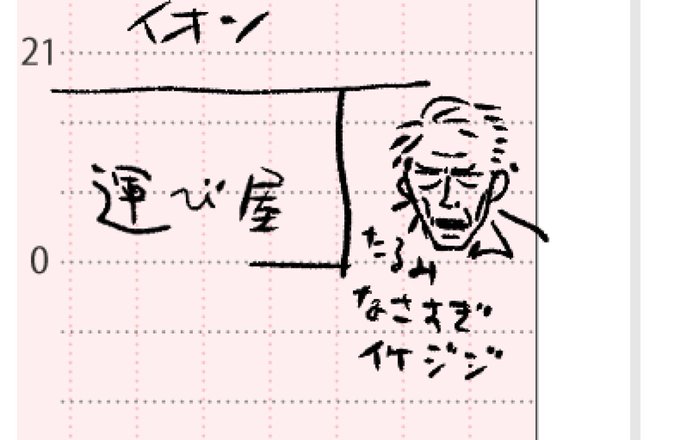 イオン
21
運び屋
0
たるみ
なさすぎ
イケジジ